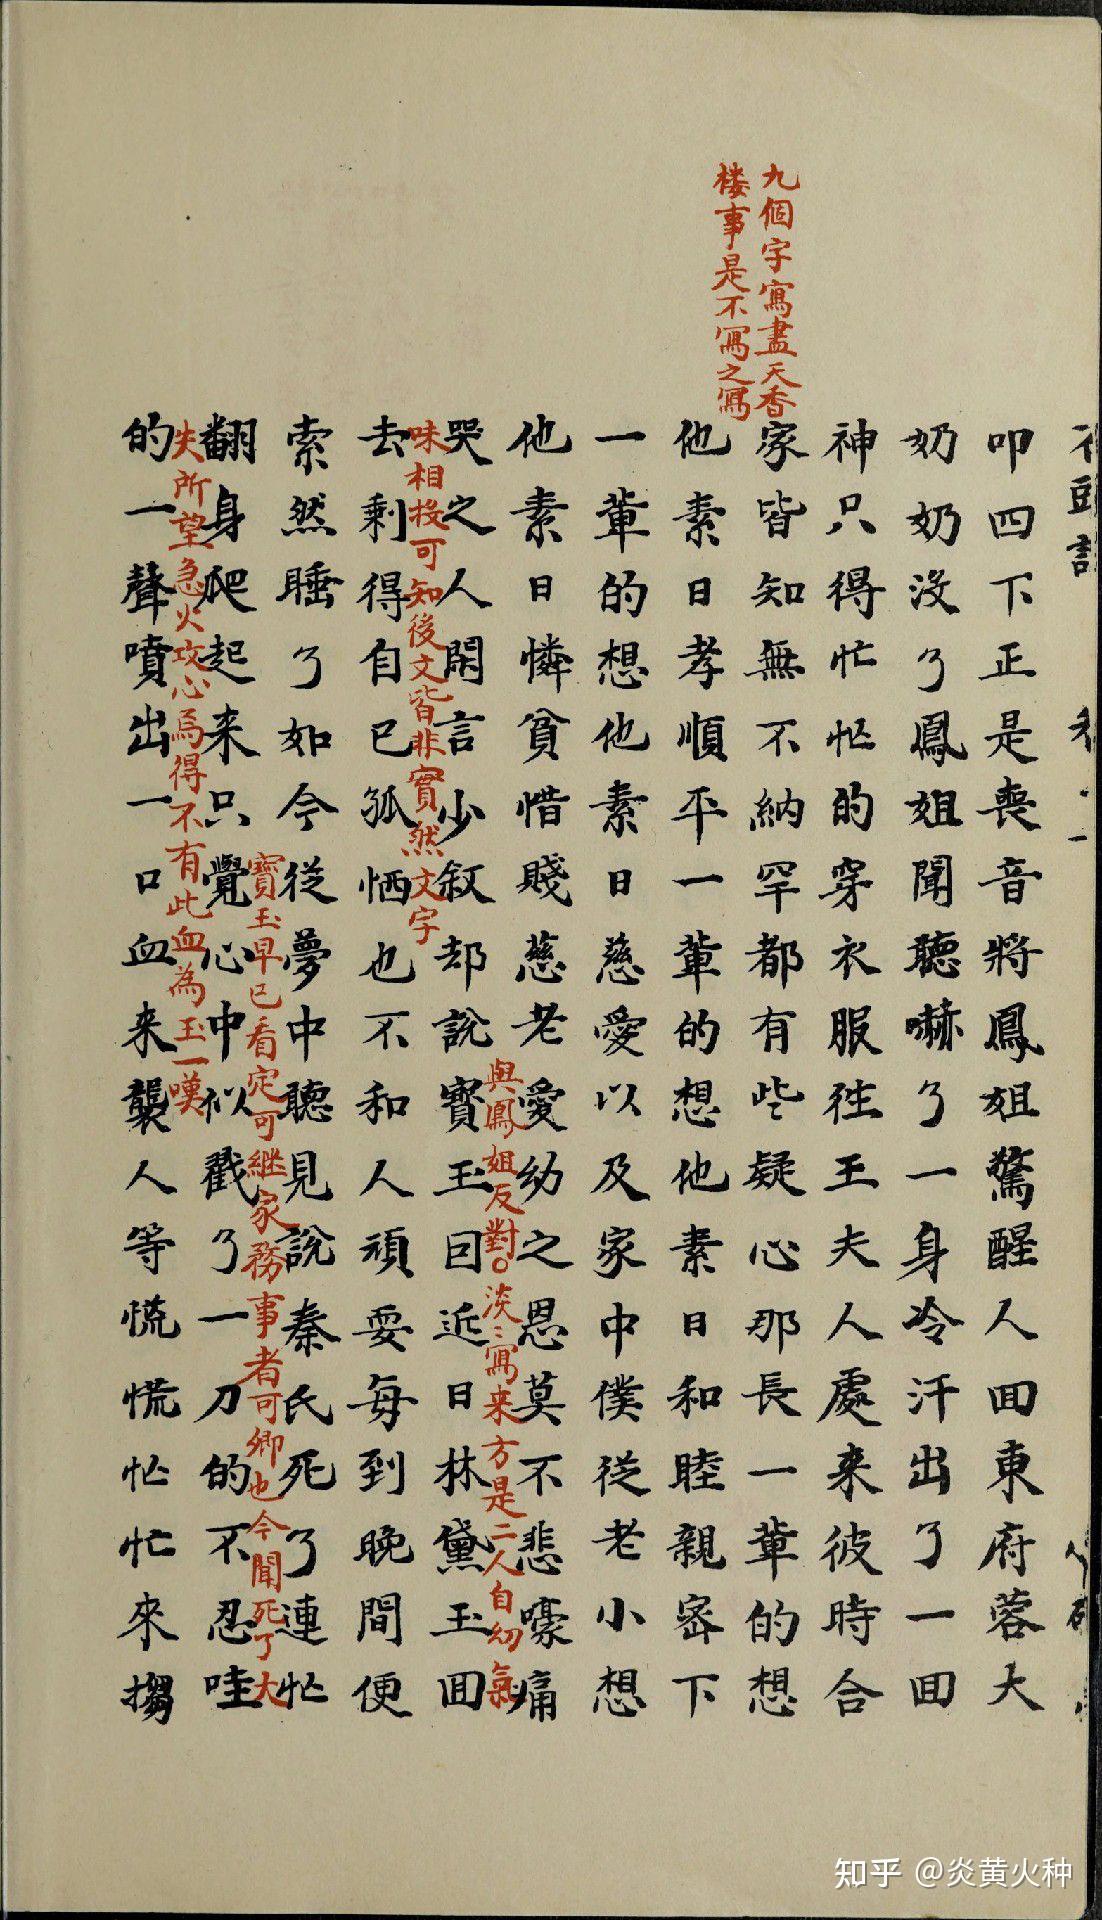 九個字寫盡天香
樓事是不寫之寫
叩四下正是喪音將鳳姐驚醒人囬東府蓉大
奶奶沒了鳳姐聞聽嚇了一身冷汗出了一囬
神只得忙忙的穿衣服往王夫人處来彼時合
家皆知無不納罕都有些疑心那長一輩的想
他素日孝順平一輩的想他素日和睦親密下
一輩的想他素日慈愛以及家中僕從老小想
他素日憐貧惜賤慈老愛幼之恩莫不悲嚎痛
與鳳姐反對○淡〻寫来方是二人自幼氣
哭之人閑言少叙却說寶玉囙近日林黛玉囬
味相投可知後文皆非實然文字
去剩得自己孤恓也不和人頑耍每到晚間便
索然睡了如今從夢中聽見說秦氏死了連忙
寶玉早已看定可継家務事者可卿也今聞死了大
翻身爬起来只覺心中似戳了一刀的不忍哇
失所望急火攻心焉得不有此血為玉一嘆
的一聲噴出一口血来襲人等慌慌忙忙來搊
知乎 @炎黄火种